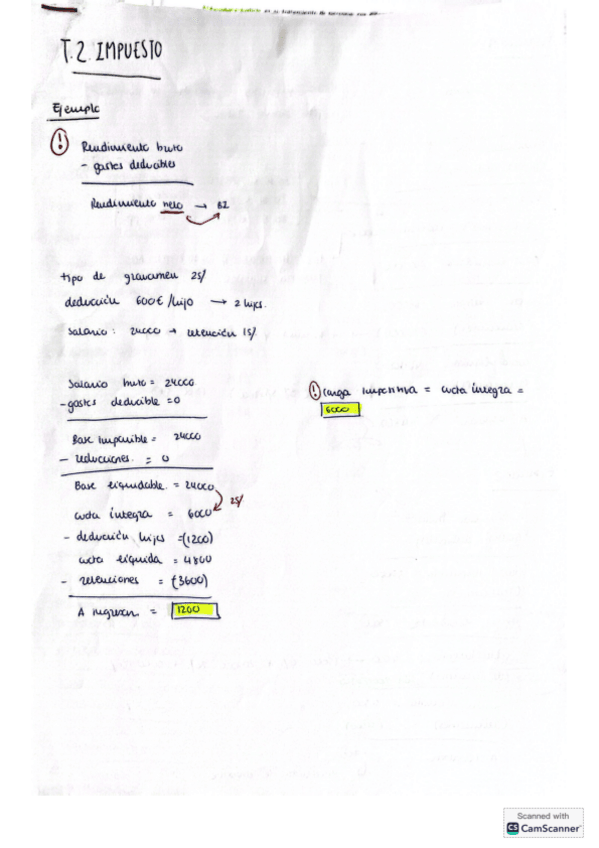 T.2. IMPUESTO
Ejemplo
! Rendimiento bruto
- gastos deducibles
Rendimiento neto → BI
tipo de gravamen 25%
deducción 600€/hijo → 2 hijos.
Salario: 24000 → retención 15%
Salario bruto = 24000
- gastos deducible = 0
Base imponible = 24000
- reducciones. = 0
Base liquidable. = 24000
25%
cuota íntegra = 6000
- deducción hijos =(1200)
cuota líquida = 4800
- retenciones = (3600)
A ingresar. = 1200
! Carga impositiva = cuota íntegra =
6000
Scanned with
CS CamScanner